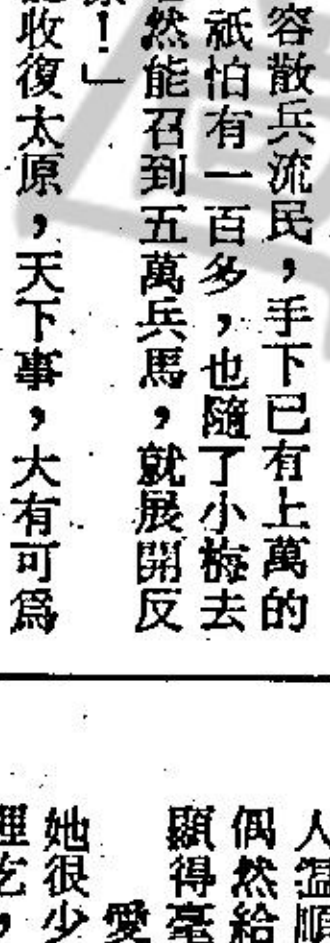 容散兵流民，手下已有上萬的
祇怕有一百多，也隨了小梅去
然能召到五萬兵馬，就展開反
！」
收復太原，天下事，大有可爲
人溫順
偶然給
顯得毫
愛
她很少
理吃，